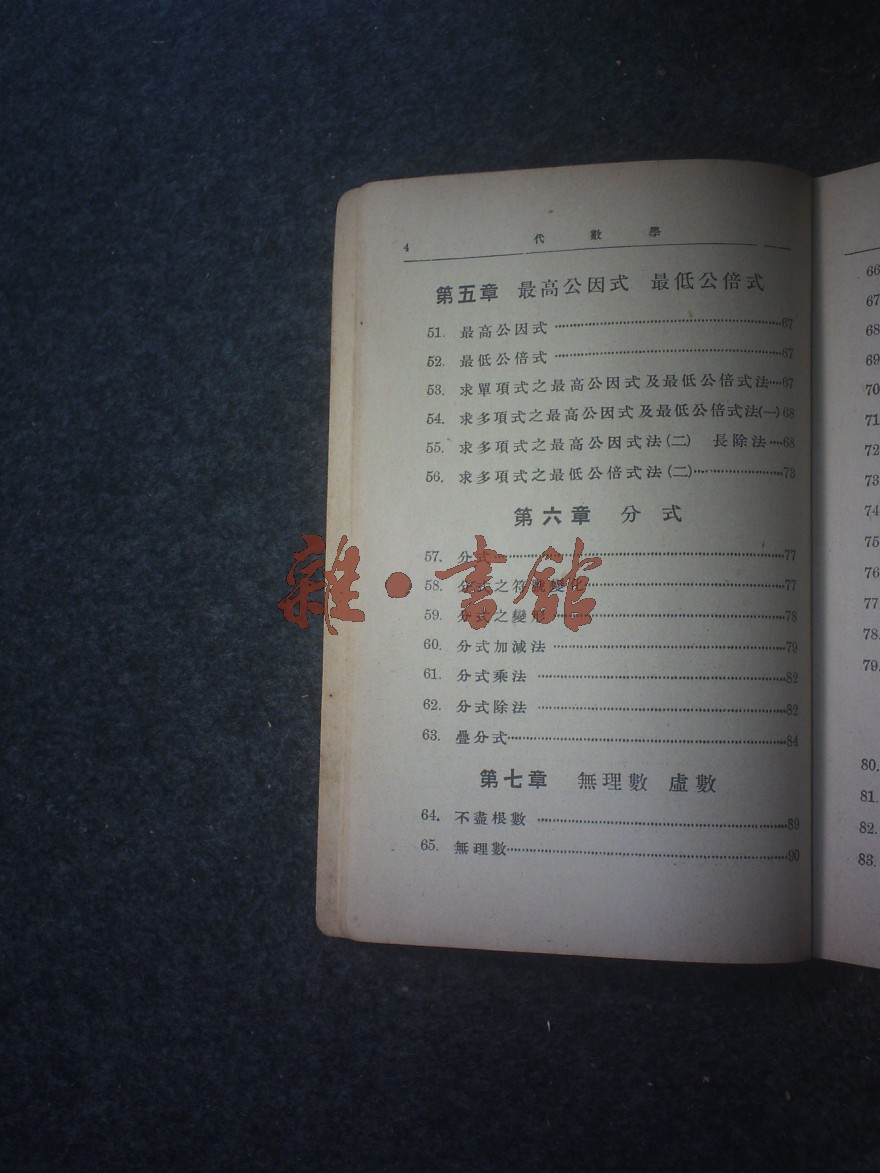 4 代數學
第五章 最高公因式 最低公倍式
51. 最高公因式 67
52. 最低公倍式 67
53. 求單項式之最高公因式及最低公倍式法 67
54. 求多項式之最高公因式及最低公倍式法(一) 68
55. 求多項式之最高公因式法(二) 長除法 68
56. 求多項式之最低公倍式法(二) 73
第六章 分式
57. 分式 77
58. 分式之符號變化 77
59. 分式之變形 78
60. 分式加減法 79
61. 分式乘法 82
62. 分式除法 82
63. 疊分式 84
第七章 無理數 虛數
64. 不盡根數 89
65. 無理數 90
雜·書館
66
67
68
69
70
71
72
73
74
75
76
77
78.
79.
80.
81.
82.
83.